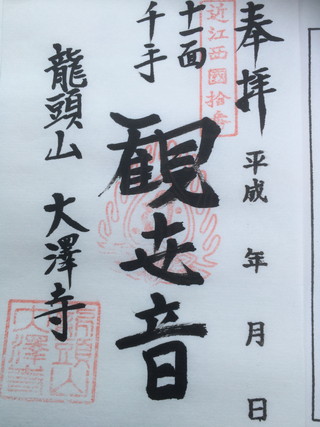 奉拝
平成 年 月 日
近江西國拾参
十一面
千手
観世音
龍頭山 大澤寺
龍頭山
大澤寺